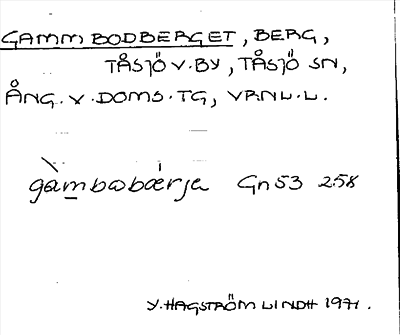 GAMMBODBERGET, BERG,
TÅSJÖ V. BY, TÅSJÖ SN,
ÅNG. V. DOMS. TG, VRNL. L.
gàmbobǽrja Gn53 258
Y. HAGSTRÖM LINDH 1971.